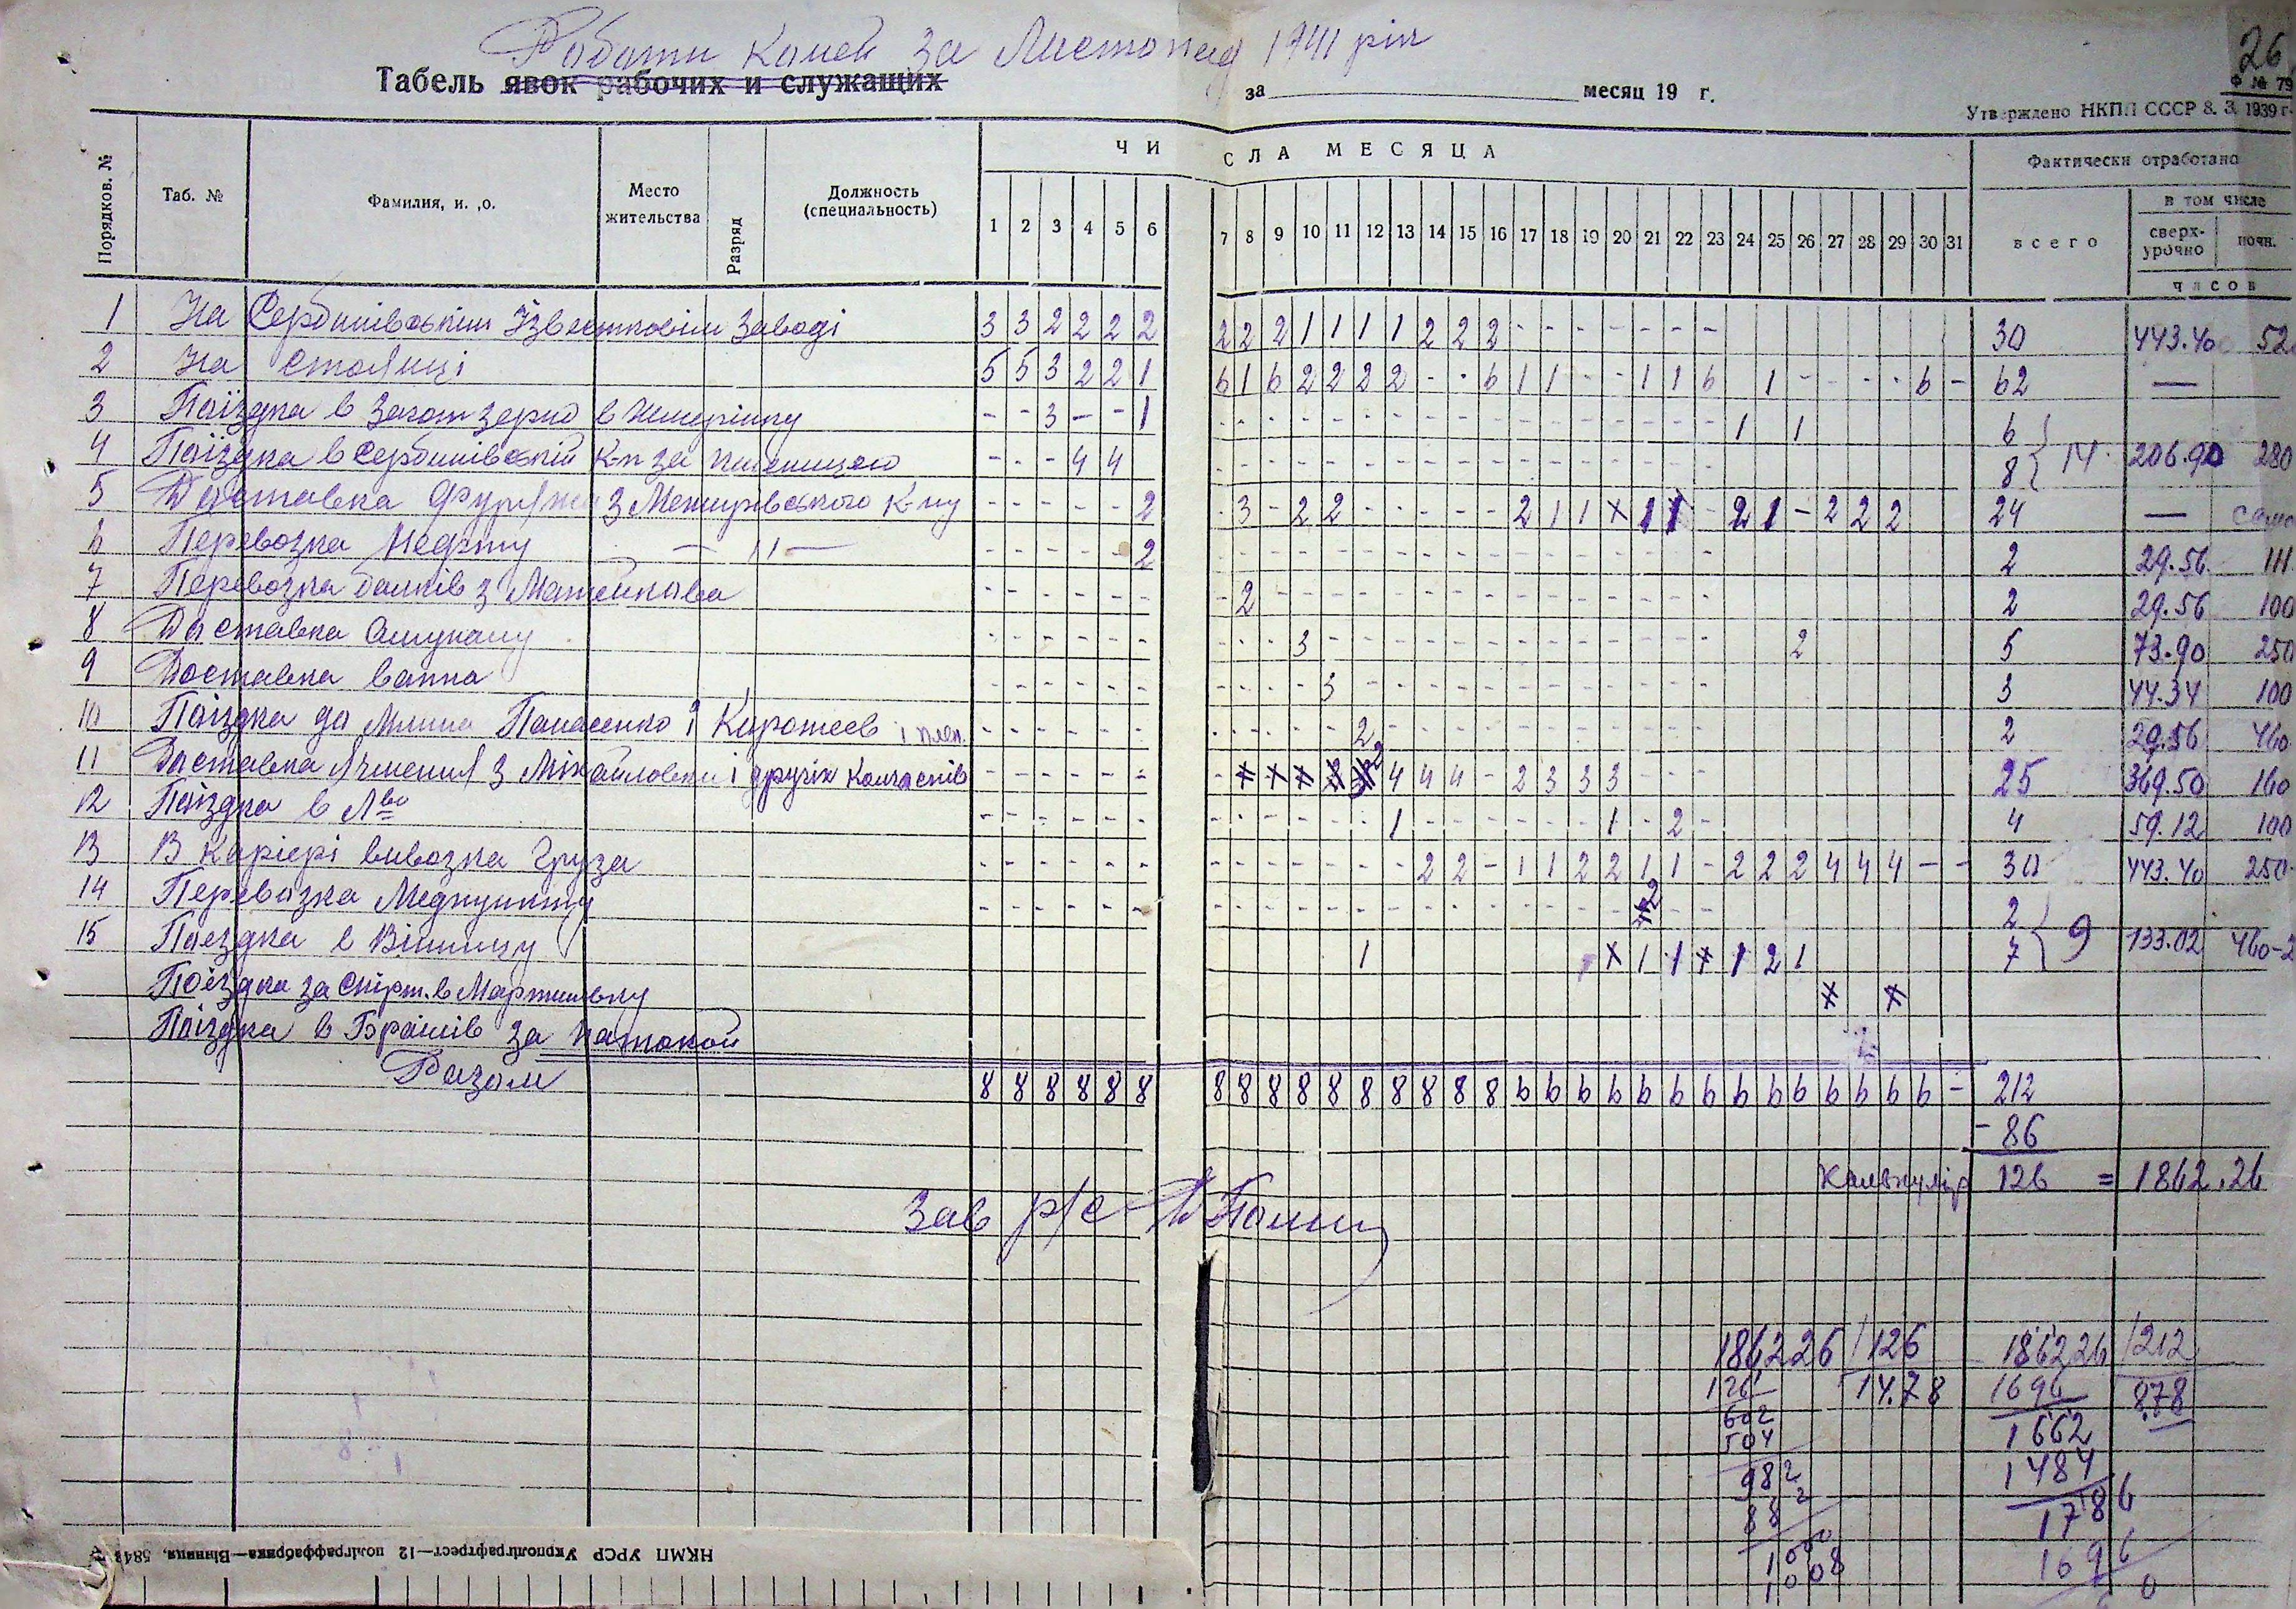 26
Роботи коней за Листопад 1941 рік
Табель явок рабочих и служащих
за месяц 19 г.
Ф № 79
Утверждено НКПП СССР 8. 3. 1939 г.
Порядков. № Таб. № Фамилия, и. ,о. Место жительства Разряд Должность (специальность) ЧИСЛА МЕСЯЦА Фактически отработано
1 2 3 4 5 6 7 8 9 10 11 12 13 14 15 16 17 18 19 20 21 22 23 24 25 26 27 28 29 30 31 всего в том числе сверх-урочно ночн.
часов
1 На Сербинівськім Ізвестковім Заводі 3 3 2 2 2 2 2 2 2 1 1 1 1 2 2 2 - - - - - - - 30 443.40 52
2 На стайнці 5 5 3 2 2 1 6 1 6 2 2 2 2 - - 6 1 1 - - 1 1 6 1 - - - - 6 - 62 —
3 Поїздка в Заготзерно в Жмерінку - - 3 - - 1 - - - - - - - - - - - - - - - - - 1 1 6
4 Поїздка в Сербинівський К-п за пшеницею - - - 4 4 - - - - - - - - - - - - - - - - - 8 } 14 206.90 280
5 Доставка Фуража з Межирівського к-пу - - - - - 2 - 3 - 2 2 - - - - - 2 1 1 х 1 1 - 2 1 - 2 2 2 24 —
6 Перевозка Нефту — 11 — - - - - - 2 - - - - - - - - - - - - - - - - - 2 29.56 111
7 Перевозка балків з Матейкова - - - - - - - 2 - - - - - - - - - - - - - - - 2 29.56 100
8 Доставка - - - - - - - - - 3 - - - - - - - - - - - - - 2 5 73.90 250
9 Доставка вапна - - - - - - - - - - 3 - - - - - - - - - - - - 3 44.34 100
10 Поїздка до Млина Панасенко і Каротеев - - - - - - - - - - - 2 - - - - - - - - - - - 2 29.56 460
11 Доставка Ячменя з Міхайловки і других колгоспів - - - - - - - 2 4 4 4 - 2 3 3 3 - - - 25 369.50 160
12 Поїздка в Л-во - - - - - - - - - - - - 1 - - - - - - 1 - 2 - 4 59.12 100
13 В Карієрі вивозка Груза - - - - - - - - - - - - - 2 2 - 1 1 2 2 1 1 - 2 2 2 4 4 4 - - 30 443.40 250
14 Перевозка Медпункту - - - - - - - - - - - - - - - - - - - - 2 - - 2
15 Поездка в Вінницу 1 х 1 1 х 1 2 1 7 } 9 133.02 460-2
Поездка за спирт. в Мартинівку х х
Поїздка в Браїлів за патокой
Разом 8 8 8 8 8 8 8 8 8 8 8 8 8 8 8 8 6 6 6 6 6 6 6 6 6 6 6 6 6 6 - 212
- 86
126 = 1862.26
Зав р/с
186226 / 126 186226 / 212
126 14.78 1696 8.78
602 1662
504 1484
982 1786
882 1696
1000
1008
НКМП УРСР Укрполіграфтрест—12 поліграффабрика—Вінниця, 584